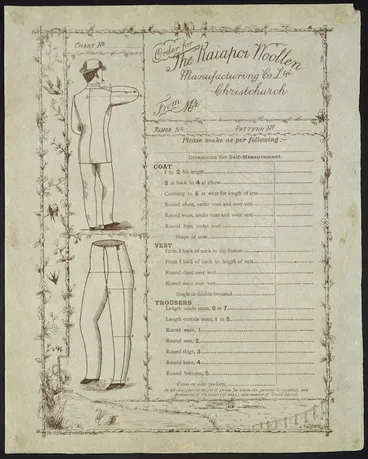 CHART No
Order for
The Kaiapoi Woollen
Manufacturing Co. Ltd
Christchurch
From Mr.
RANGE No PATTERN No
Please make as per following:-
Directions for Self-Measurement
COAT
1 to 2 for length
3 at back to 4 at elbow
Continuing to 5 at wrist for length of arm
Round chest, under coat and over vest
Round waist, under coat and over vest
Round hips, under coat
Shape of coat
VEST
From 1 back of neck to top button
From 1 back of neck to length of vest
Round chest over vest
Round waist over vest
Single or double-breasted
TROUSERS
Length inside seam, 6 to 7
Length outside seam, 1 to 5
Round waist, 1
Round seat, 2
Round thigh, 3
Round knee, 4
Round bottoms, 5
Cross or side pockets